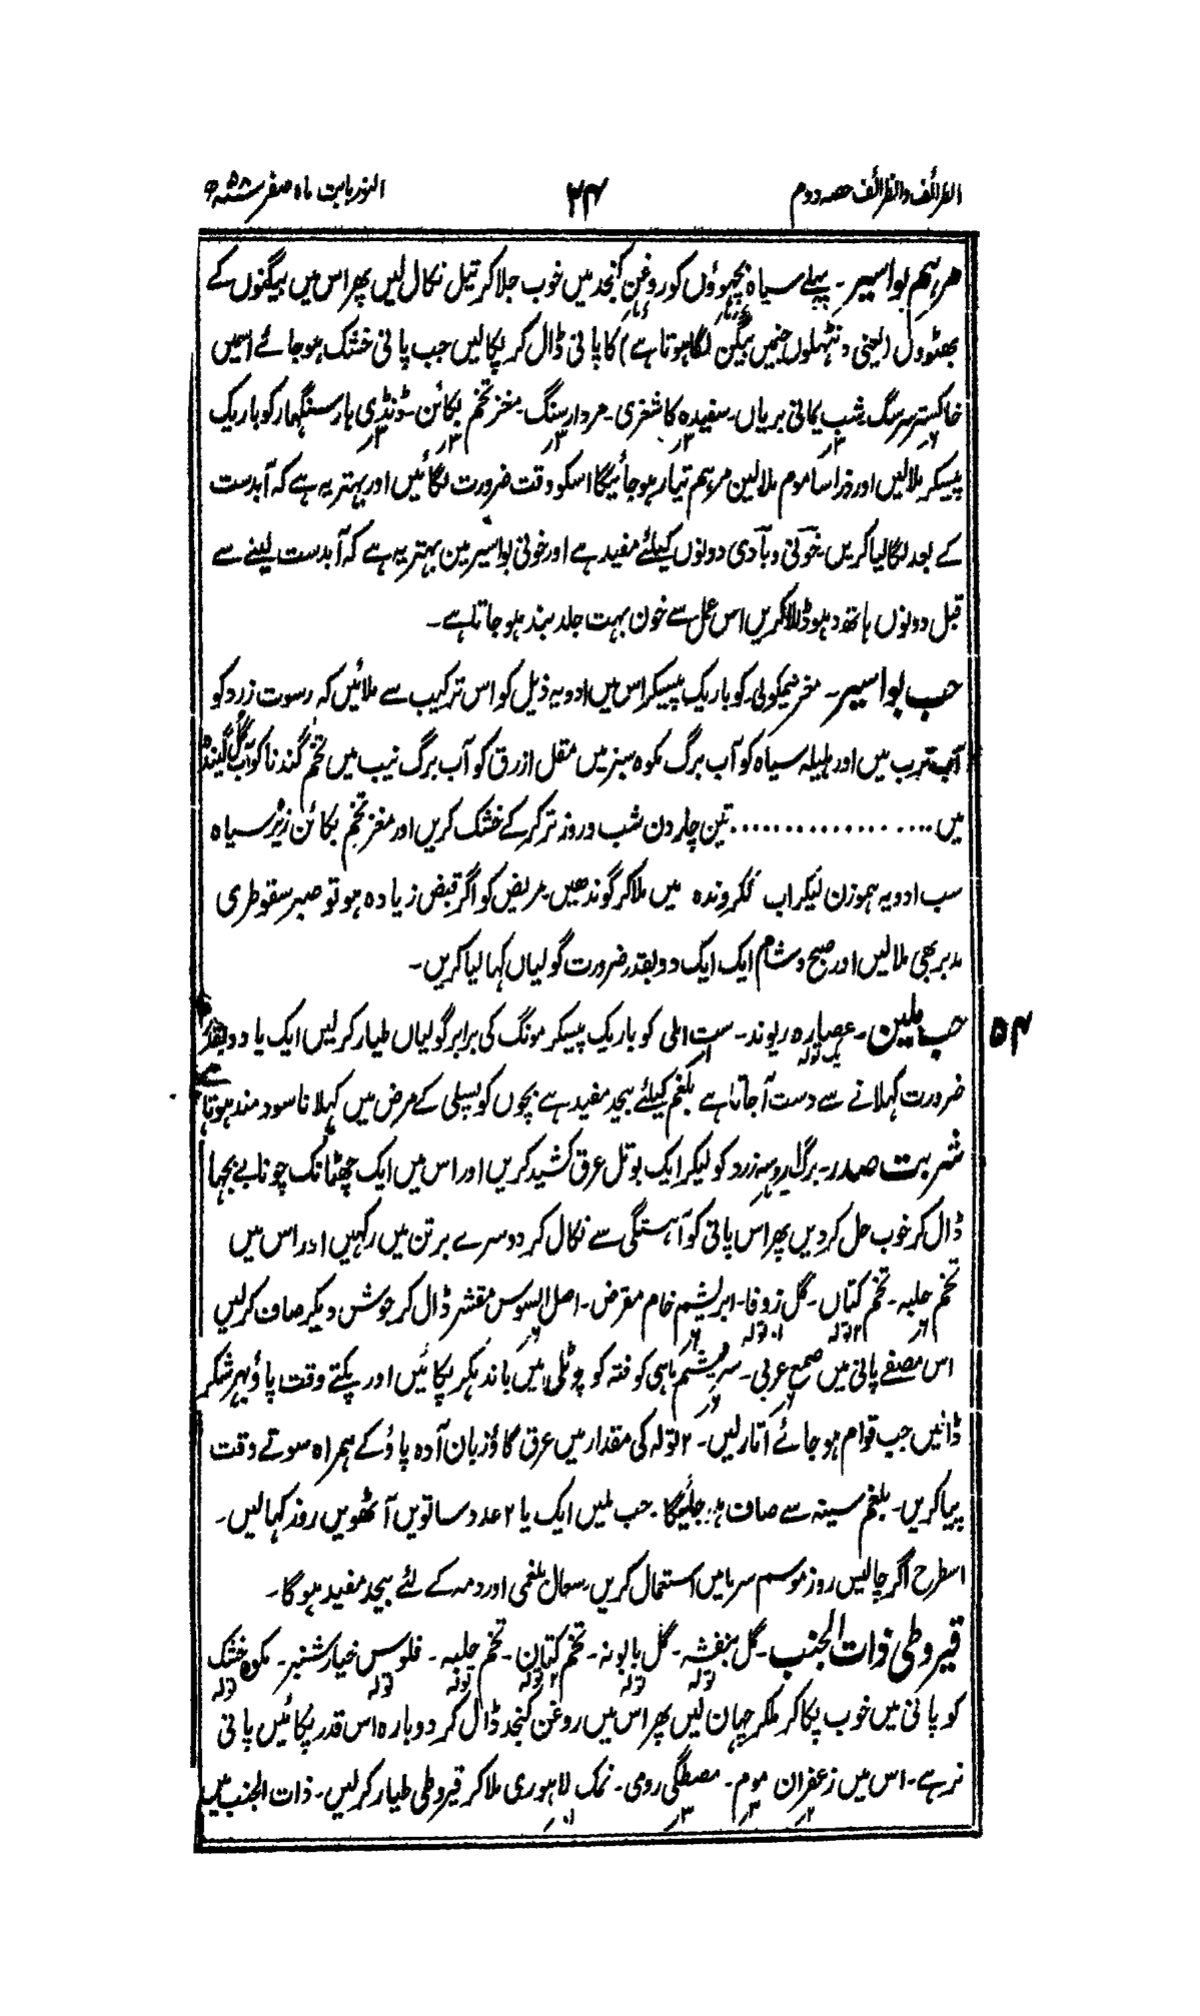 الطرائف والظرائف حصہ دوم
۲۴
النور بابت ماہ صفر ۵۸ھ
مرہم بواسیر۔ پہلے سیاہ بچھوؤں کو روغن کنجد میں خوب جلا کر تیل نکال لیں پھر اس میں بیگنوں کے
بھٹووں (یعنی ڈنٹھلوں جنمیں بیگن لگا ہوتا ہے) کا پانی ڈال کر پکالیں جب پانی خشک ہوجائے اسمیں
خاکستر سرسگ۔ شب یمانی بریاں۔ سفیدہ کاشغری۔ مردارسنگ۔ مغز تخم بکائن۔ ڈنڈی ہارسنگھار کو باریک
پیسکر ملالیں اور ذرا سا موم ملالین مرہم تیار ہوجائیگا اسکو وقت ضرورت لگائیں اور بہتر یہ ہے کہ آبدست
کے بعد لگالیا کریں۔ خونی و بادی دونوں کیلئے مفید ہے اور خونی بواسیر مین بہتر یہ ہے کہ آبدست لینے سے
قبل دونوں ہاتھ دہو ڈالا کریں اس عمل سے خون بہت جلد بند ہو جاتا ہے۔
حب بواسیر۔ مغز نمیکولی۔ کو باریک پیسکر اس میں ادویہ ذیل کو اس ترکیب سے ملائیں کہ رسوت زرد کو
آب ترب میں اور ہلیلہ سیاہ کو آب برگ مکوہ سبز میں مقل ازرق کو آب برگ نیب میں تخم گندنا کو آب گل گیندا
میں .................. تین چار دن شب و روز تر کرکے خشک کریں اور مغز تخم بکائن زیرہ سیاہ
سب ادویہ ہموزن لیکر اب ککروندہ میں ملاکر گوندھیں۔ مریض کو اگر قبض زیادہ ہو تو صبر سقوطری
مدبر بھی ملالیں اور صبح و شام ایک ایک دو بقدر ضرورت گولیاں کہا لیا کریں۔
۵۴
حب ملین۔ عصارہ ریوند۔ ست املی کو باریک پیسکر مونگ کی برابر گولیاں طیار کرلیں ایک یا دو بقدر
یک تولہ
ضرورت کہلانے سے دست آجاتا ہے بلغم کیلئے بیحد مفید ہے بچوں کو پسلی کے مرض میں کہلانا سودمند ہوتا ہے
شربت صدر۔ برگ اروسہ زرد کو لیکر ایک بوتل عرق کشید کریں اور اس میں ایک چھٹانک چونا بے بجہا
ڈال کر خوب حل کردیں پھر اس پانی کو آہستگی سے نکال کر دوسرے برتن میں رکہیں اور اس میں
تخم حلبہ۔ تخم کتاں۔ گل زوفا۔ ابریشم خام مقرض۔ اصل السوس مقشر ڈال کر جوش دیکر صاف کرلیں
اس مصفے پانی میں صمغ عربی۔ سریشم ماہی کوفتہ کو پوٹلی میں باندہکر پکائیں اور پکتے وقت پاؤ بہر شکر
ڈالیں جب قوام ہو جائے اتارلیں۔ ۲ تولہ کی مقدار میں عرق گاؤزبان آدہ پاؤ کے ہمراہ سوتے وقت
پیا کریں۔ بلغم سینہ سے صاف ہو جائیگا۔ حب ملیں ایک یا ۲ عدد ساتویں آٹھویں روز کہالیں۔
اسطرح اگر چالیس روز موسم سرما میں استعمال کریں۔ سعال بلغمی اور دمہ کے لئے بیحد مفید ہوگا۔
قیروطی ذات الجنب۔ گل بنفشہ۔ گل بابونہ۔ تخم کتان۔ تخم حلبہ۔ فلوس خیارشنبر۔ مکوہ خشک
تولہ تولہ ۲ تولہ تولہ تولہ تولہ
کو پانی میں خوب پکا کر ملکر چہان لیں پھر اس میں روغن کنجد ڈال کر دوبارہ اس قدر پکائیں پانی
نرہے۔ اس میں زعفران موم۔ مصطگی رومی۔ نمک لاہوری ملاکر قیروطی طیار کرلیں۔ ذات الجنب میں